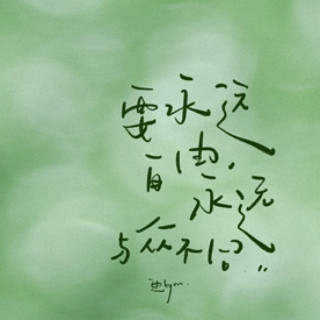 要永远
自由,
永远
与众不同"